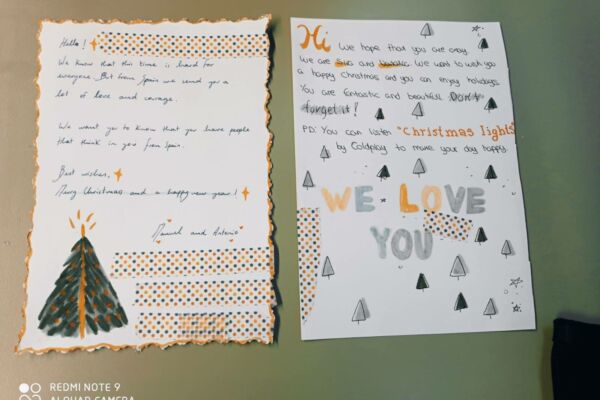 Hello!
We know that this time is hard for
everyone. But from Spain we send you a
lot of love and courage.
We want you to know that you have people
that think in you from Spain.
Best wishes,
Merry Christmas and a happy new year!
Manuel and Antonio
Hi We hope that you are okay.
We are and We want to wish you
a happy Christmas and you can enjoy holidays.
You are fantastic and beautiful. Don't
forget it!
PD: You can listen "Christmas lights"
by Coldplay to make your day happy.
WE LOVE
YOU
REDMI NOTE 9
AI QUAD CAMERA